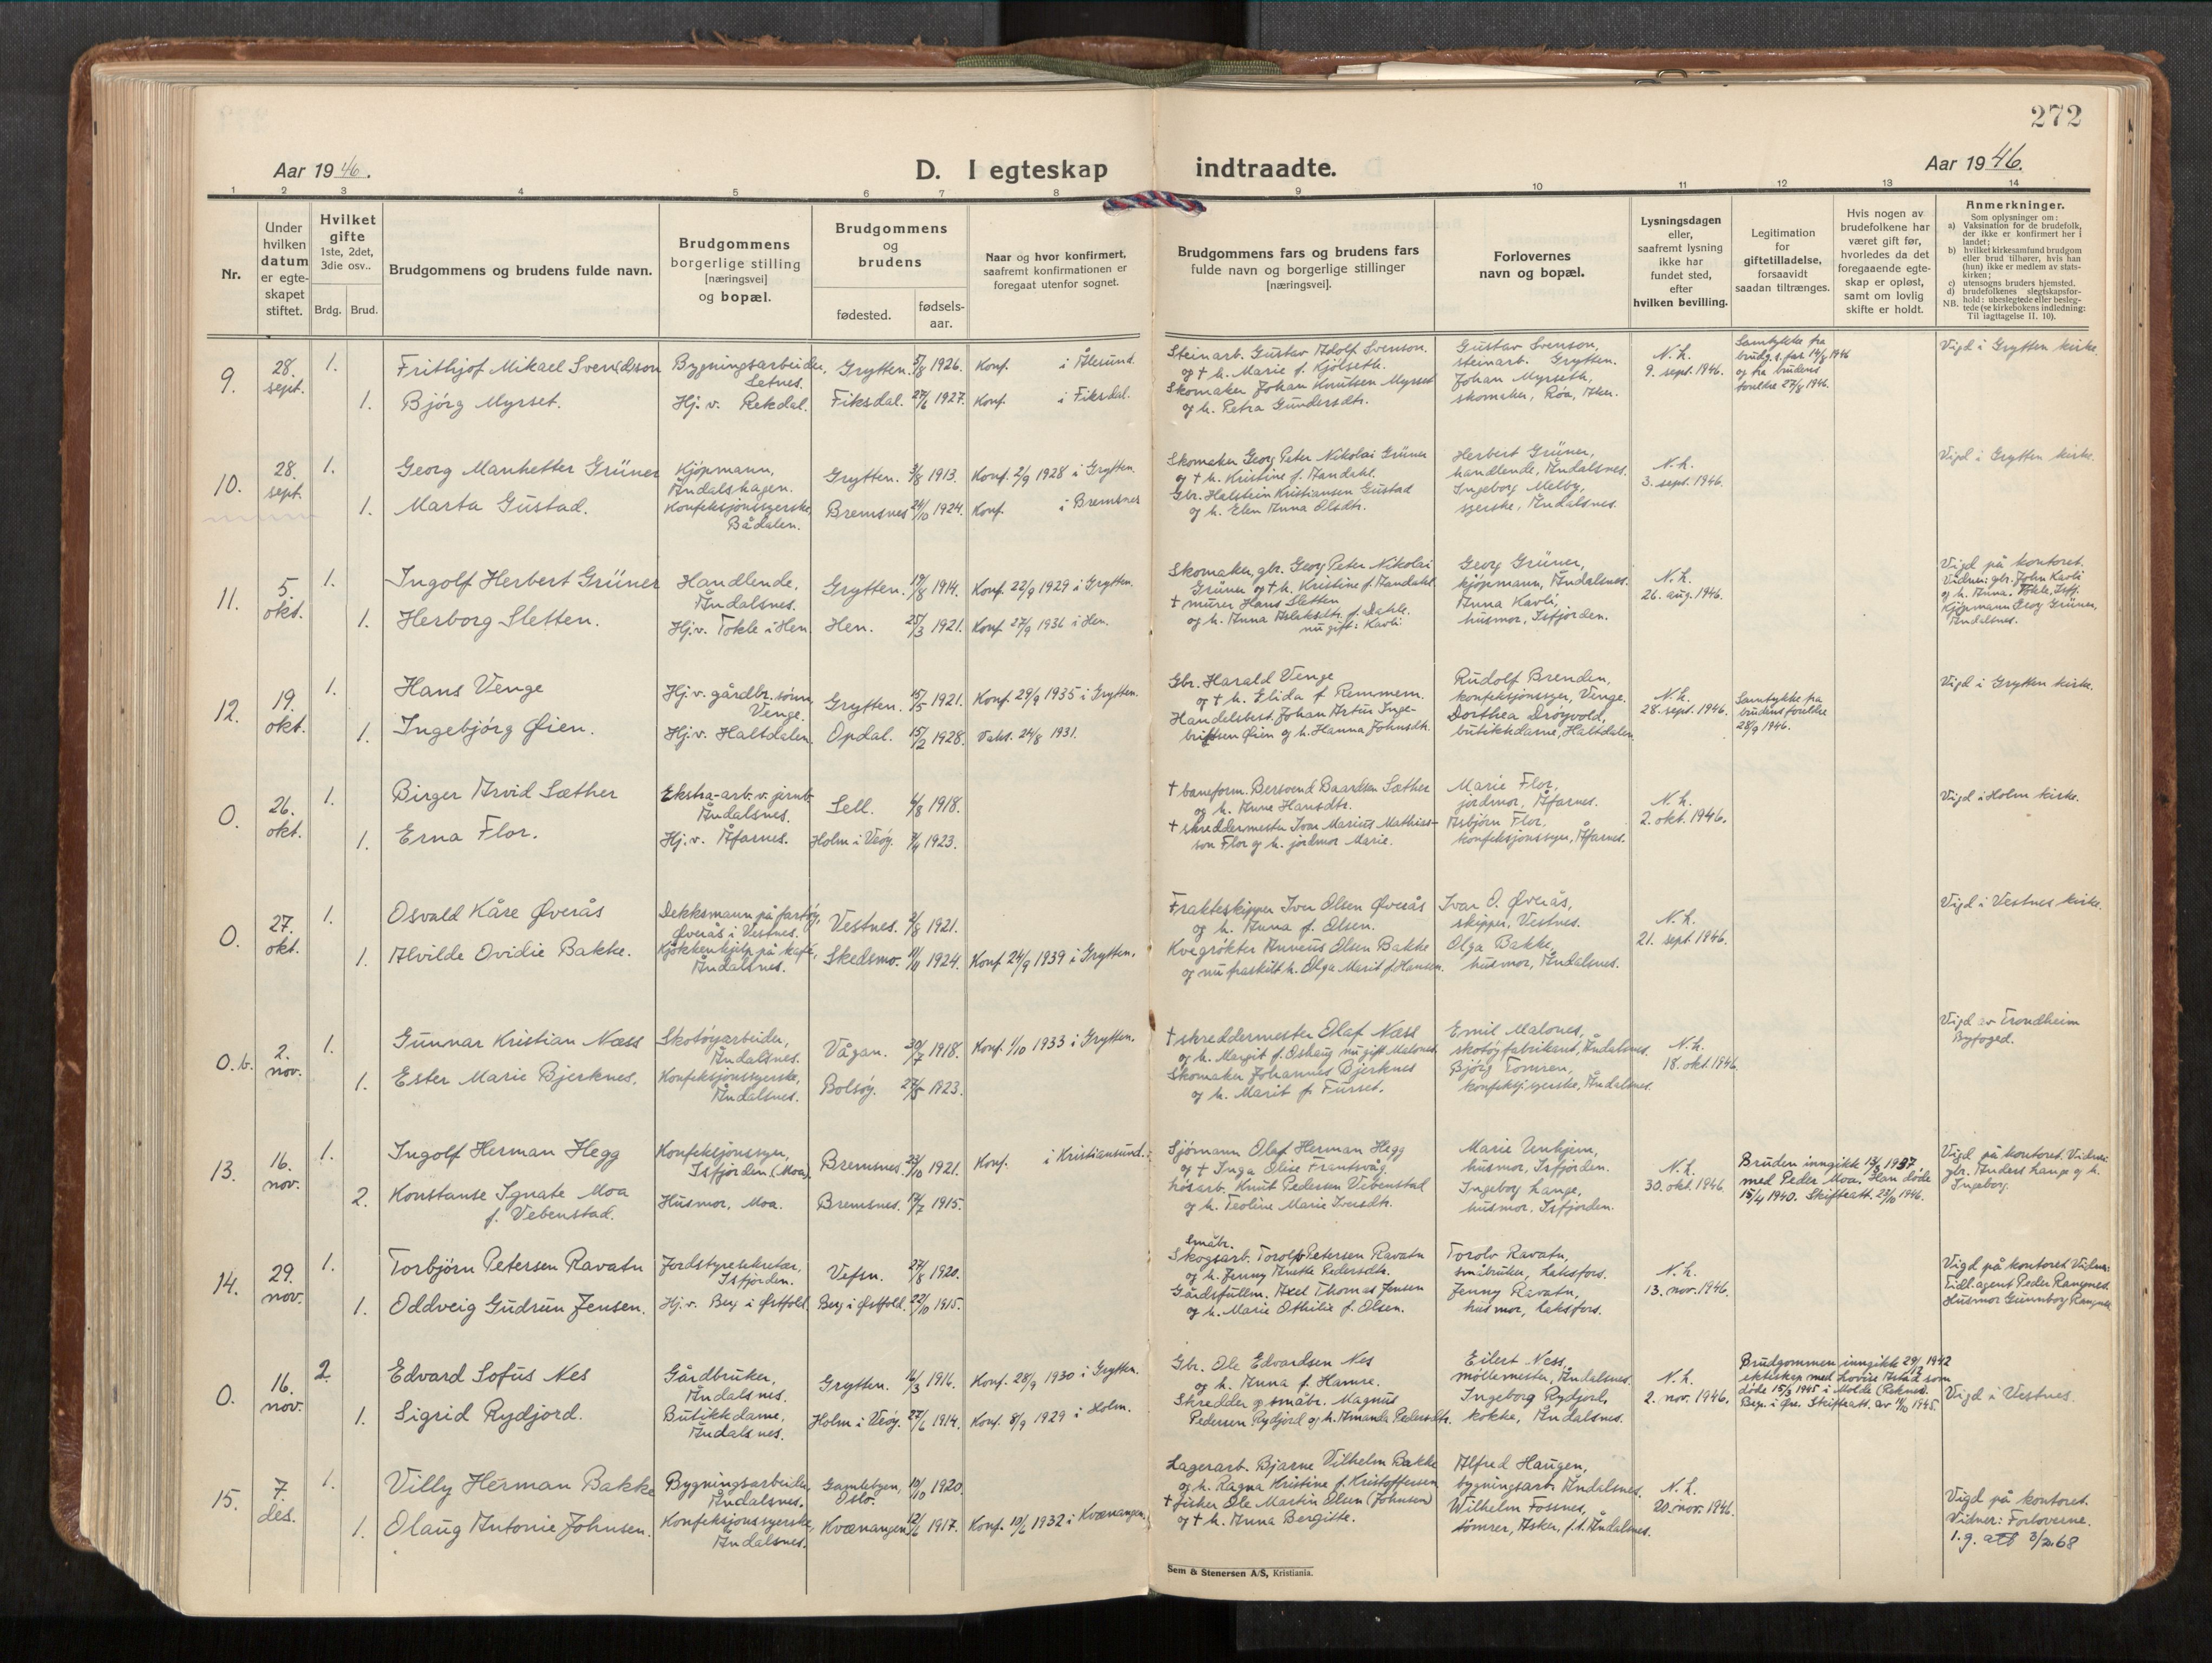 272
Aar 1946.
D. I egteskap indtraadte.
Aar 1946.
1 2 3 4 5 6 7 8 9 10 11 12 13 14
Nr.
Under hvilken datum er egte-skapet stiftet.
Hvilket gifte 1ste, 2det, 3die osv..
Brdg. Brud.
Brudgommens og brudens fulde navn.
Brudgommens borgerlige stilling [næringsvei] og bopæl.
Brudgommens og brudens
fødested.
fødsels-aar.
Naar og hvor konfirmert, saafremt konfirmationen er foregaat utenfor sognet.
Brudgommens fars og brudens fars fulde navn og borgerlige stillinger [næringsvei].
Forlovernes navn og bopæl.
Lysningsdagen eller, saafremt lysning ikke har fundet sted, efter hvilken bevilling.
Legitimation for giftetilladelse, forsaavidt saadan tiltrænges.
Hvis nogen av brudefolkene har været gift før, hvorledes da det foregaaende egte-skap er opløst, samt om lovlig skifte er holdt.
Anmerkninger.
Som oplysninger om:
a) Vaksination for de brudefolk, der ikke er konfirmert her i landet;
b) hvilket kirkesamfund brudgom eller brud tilhører, hvis han (hun) ikke er medlem av stats-kirken;
c) utensogns bruders hjemsted,
d) brudefolkenes slegtskapsfor-hold: ubeslegtede eller besleg-tede (se kirkebokens indledning: Til iagttagelse II. 10).
NB.
9. 28. sept. 1. Frithjof Mikael Sven(d)son
Bygningsarbeider, Setnes.
Grytten. 5/8 1926. Konf. i Ålesund.
Steinarb. Gustav Adolf Svenson.
og † h. Marie f. Kjölseth.
Gustav Svenson, steinarb. Grytten.
N.h. 9. sept. 1946.
Samtykke fra brudg.s far 14/9 1946 og fra brudens foreldre 27/8 1946.
Vigd i Grytten kirke.
1. Bjórg Myrset.
Hj. v. Rekdal. Fiksdal. 27/6 1927. Konf. i Fiksdal.
Skomaker Johan Knutsen Myrset
og h. Petra Gundersdtr.
Johan Myrseth, skomaker, Róa, Aker.
10. 28. sept. 1. Georg Manhetter Grüner
Kjópmann, Åndalshagen.
Grytten. 3/8 1913. Konf. 2/9 1928 i Grytten.
Skomaker Georg Peter Nikolai Grüner
og † h. Kristine f. Aandahl.
Herbert Grüner, handlende, Åndalsnes.
N.h. 3. sept. 1946.
Vigd i Grytten kirke.
1. Marta Gustad.
Konfeksjonssyerske, Bådalen.
Bremsnes 24/10 1924. Konf. i Bremsnes
Gbr. Halstein Kristiansen Gustad
og h. Elen Anna Olsdtr.
Ingeborg Melby, syerske, Åndalsnes.
11. 5. okt. 1. Ingolf Herbert Grüner
Handlende, Åndalsnes.
Grytten. 19/8 1914. Konf. 22/9 1929 i Grytten.
Skomaker, gbr. Georg Peter Nikolai
Grüner og † h. Kristine f. Aandahl.
Georg Grüner, kjópmann, Åndalsnes.
N.h. 26. aug. 1946.
Vigd på kontoret.
Vidner: gbr. John Kavli
og h. Anna. Tokle, Isfj.
Kjópmann Georg Grüner, Åndalsnes.
1. Herborg Sletten.
Hj.v. Tokle i Hen Hen. 25/3 1921. Konf. 27/9 1936 i Hen.
† murer Hans Sletten
og h. Anna Aslaksdtr. f. Dahle.
nu gift: Kavli
Anna Kavli, husmor, Isfjorden.
12. 19. okt. 1. Hans Venge
Hj.v. gårdbr. sónn, Venge.
Grytten. 15/5 1921. Konf. 29/9 1935 i Grytten.
Gbr. Harald Venge
og † h. Elida f. Remmem.
Rudolf Brenden, konfeksjonssyer, Venge.
N.h. 28. sept. 1946.
Samtykke fra brudens foreldre 28/9 1946.
Vigd i Grytten kirke.
1. Ingebjórg Øien.
Hj.v. Haltdalen. Opdal. 15/2 1928. Vaks. 24/8 1931.
Handelsbest. Johan Artur Inge-
brigtsen Øien og h. Hanna Johnsdtr.
Dorthea Drøyvold, butikkdame, Haltdalen.
0. 26. okt. 1. Birger Arvid Sæther
Ekstra-arb. v. jernb. Åndalsnes.
Sell. 6/8 1918.
† baneform. Bersvend Baardsen Sæther
og h. Anne Hansdtr.
Marie Flor, jordmor, Åfarnes.
N.h. 2. okt. 1946.
Vigd i Holm kirke.
1. Erna Flor.
Hj. v. Åfarnes. Holm i Veóy. 9/4 1923.
† skreddermester Ivar Marius Mathias-
son Flor og h. jordmor Marie.
Asbjórn Flor, konfeksjonssyer, Åfarnes.
0. 27. okt. 1. Osvald Kåre Øverås
Dekksmann på fartóy, Øverås i Vestnes.
Vestnes. 2/8 1921.
Frakteskipper Iver Olsen Øverås
og h. Anna f. Olsen.
Ivar O. Øverås, skipper, Vestnes.
N.h. 21. sept. 1946.
Vigd i Vestnes kirke.
1. Alvilde Ovidie Bakke.
Kjókkenhjelp på kafé, Åndalsnes.
Skedsmo. 11/11 1924. Konf. 24/9 1939 i Grytten.
Kvegrókter Anneus Olsen Bakke
og nu fraskilt h. Olga Marit f. Hansen.
Olga Bakke, husmor, Åndalsnes.
0.b. 2. nov. 1. Gunnar Kristian Næss
Skotóyarbeider, Åndalsnes.
Vågan. 30/7 1918. Konf. 1/10 1933 i Grytten.
† skreddermester Olaf Næss
og h. Margit f. Oshaug nu gift Malones.
Emil Malones, skotóyfabrikant, Åndalsnes.
N.h. 18. okt. 1946.
Vigd av Trondheim Byfoged.
1. Ester Marie Bjerknes.
Konfeksjonssyerske, Åndalsnes.
Bolsóy. 27/8 1923.
Skomaker Johannes Bjerknes
og h. Marit f. Furset.
Bjórg Tomren, konfeksj.syerske, Åndalsnes.
13. 16. nov. 1. Ingolf Herman Hegg
Konfeksjonssyer, Isfjorden (Moa).
Bremsnes 23/10 1921. Konf. i Kristiansund.
Sjómann Olaf Herman Hegg
og † Inga Elise Frantsvåg.
Marie Unhjem, husmor, Isfjorden.
N.h. 30. okt. 1946.
Bruden inngikk 13/3 1937
med Peder Moa. Han døde
15/4 1940. Skifteatt. 23/10 1946.
Vigd på kontoret. Vidner:
gbr. Anders Lange og h. Ingeborg.
2. Konstanse Ignate Moa
f. Vebenstad.
Husmor, Moa. Bremsnes. 19/7 1915.
Løsarb. Knut Pedersen Vebenstad
og h. Teoline Marie Iversdtr.
Ingeborg Lange, husmor, Isfjorden.
14. 29. nov. 1. Torbjórn Petersen Ravatn
Jordstyresekretær, Isfjorden.
Vefsn. 27/8 1920.
Småbr.
Skogsarb. Torolv Petersen Ravatn
og h. Jenny Anette Pedersdtr.
Torolv Ravatn, småbruker, Laksfors.
N.h. 13. nov. 1946.
Vigd på kontoret Vidner:
Tidl. agent Peder Rangnes.
Husmor Gunnborg Rangnes
1. Oddveig Gudrun Jensen.
Hj.v. Berg i Østfold. Berg i Østfold. 22/10 1915.
Gårdsfullm. Axel Thomas Jensen
og h. Marie Othilie f. Olsen.
Jenny Ravatn, husmor, Laksfors.
0. 16. nov. 2. Edvard Sofus Nes
Gårdbruker, Åndalsnes.
Grytten. 16/3 1916. Konf. 28/9 1930 i Grytten.
Gbr. Ole Edvardsen Nes
og h. Anna f. Hamre.
Eilert Ness, møllemester, Åndalsnes.
N.h. 2. nov. 1946.
Brudgommen inngikk 29/12 1942
ekteskap med Lovise Astad som
døde 15/3 1945 i Molde (Reknes.
Vigd i Vestnes.
1. Sigrid Rydjord.
Butikkdame, Åndalsnes.
Holm i Veóy. 27/6 1914. Konf. 8/9 1929 i Holm.
Skredder og småbr. Magnus
Pedersen Rydjord og h. Amanda Pedersdtr.
Ingeborg Rydjord, kokke, Åndalsnes.
15. 7. des. 1. Villy Herman Bakke
Bygningsarbeider, Åndalsnes.
Gamlebyen, Oslo. 10/10 1920.
Lagerarb. Bjarne Vilhelm Bakke
og h. Ragna Kristine f. Kristoffersen
Alfred Haugen, bygningsarb. Åndalsnes.
N.h. 20. nov. 1946.
Vigd på kontoret.
Vidner: Forloverne.
1. Olaug Antonie Johnsen.
Konfeksjonssyerske, Åndalsnes.
Kvænangen 12/6 1917. Konf. 10/6 1932 i Kvænangen.
† fisker Ole Martin Olsen (Johnsen)
og † h. Anna Bergitte.
Wilhelm Fossnes, tómrer, Asker, f.t. Åndalsnes.
1.g. att 3/2.68
Sem & Stenersen A/S, Kristiania.